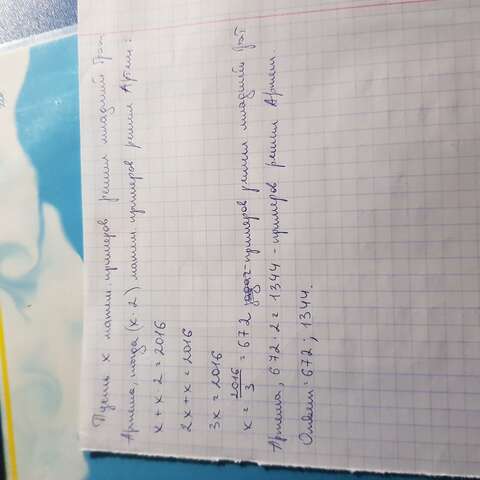 Пусть x матем. примеров решил младший брат
Артема, тогда (x·2) матем. примеров решил Артем:
x + x·2 = 2016
2x + x = 2016
3x = 2016
x = 2016/3 = 672 задач - примеров решил младший брат
Артема, 672·2 = 1344 - примеров решил Артем.
Ответ: 672; 1344.